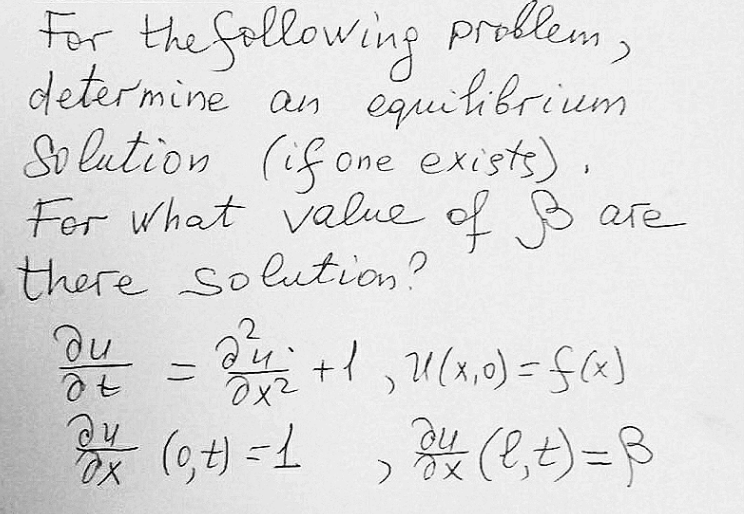 For the following problem,
determine an equilibrium
Solution (if one exists).
For what value of β are
there solution?
∂u/∂t = ∂²u/∂x² + 1, u(x,0) = f(x)
∂u/∂x (0,t) = 1, ∂u/∂x (l,t) = β